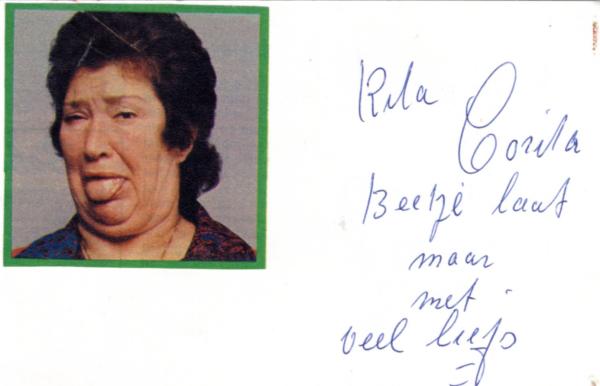 Rita
Corita
Beetje laat
maar
met
veel liefs